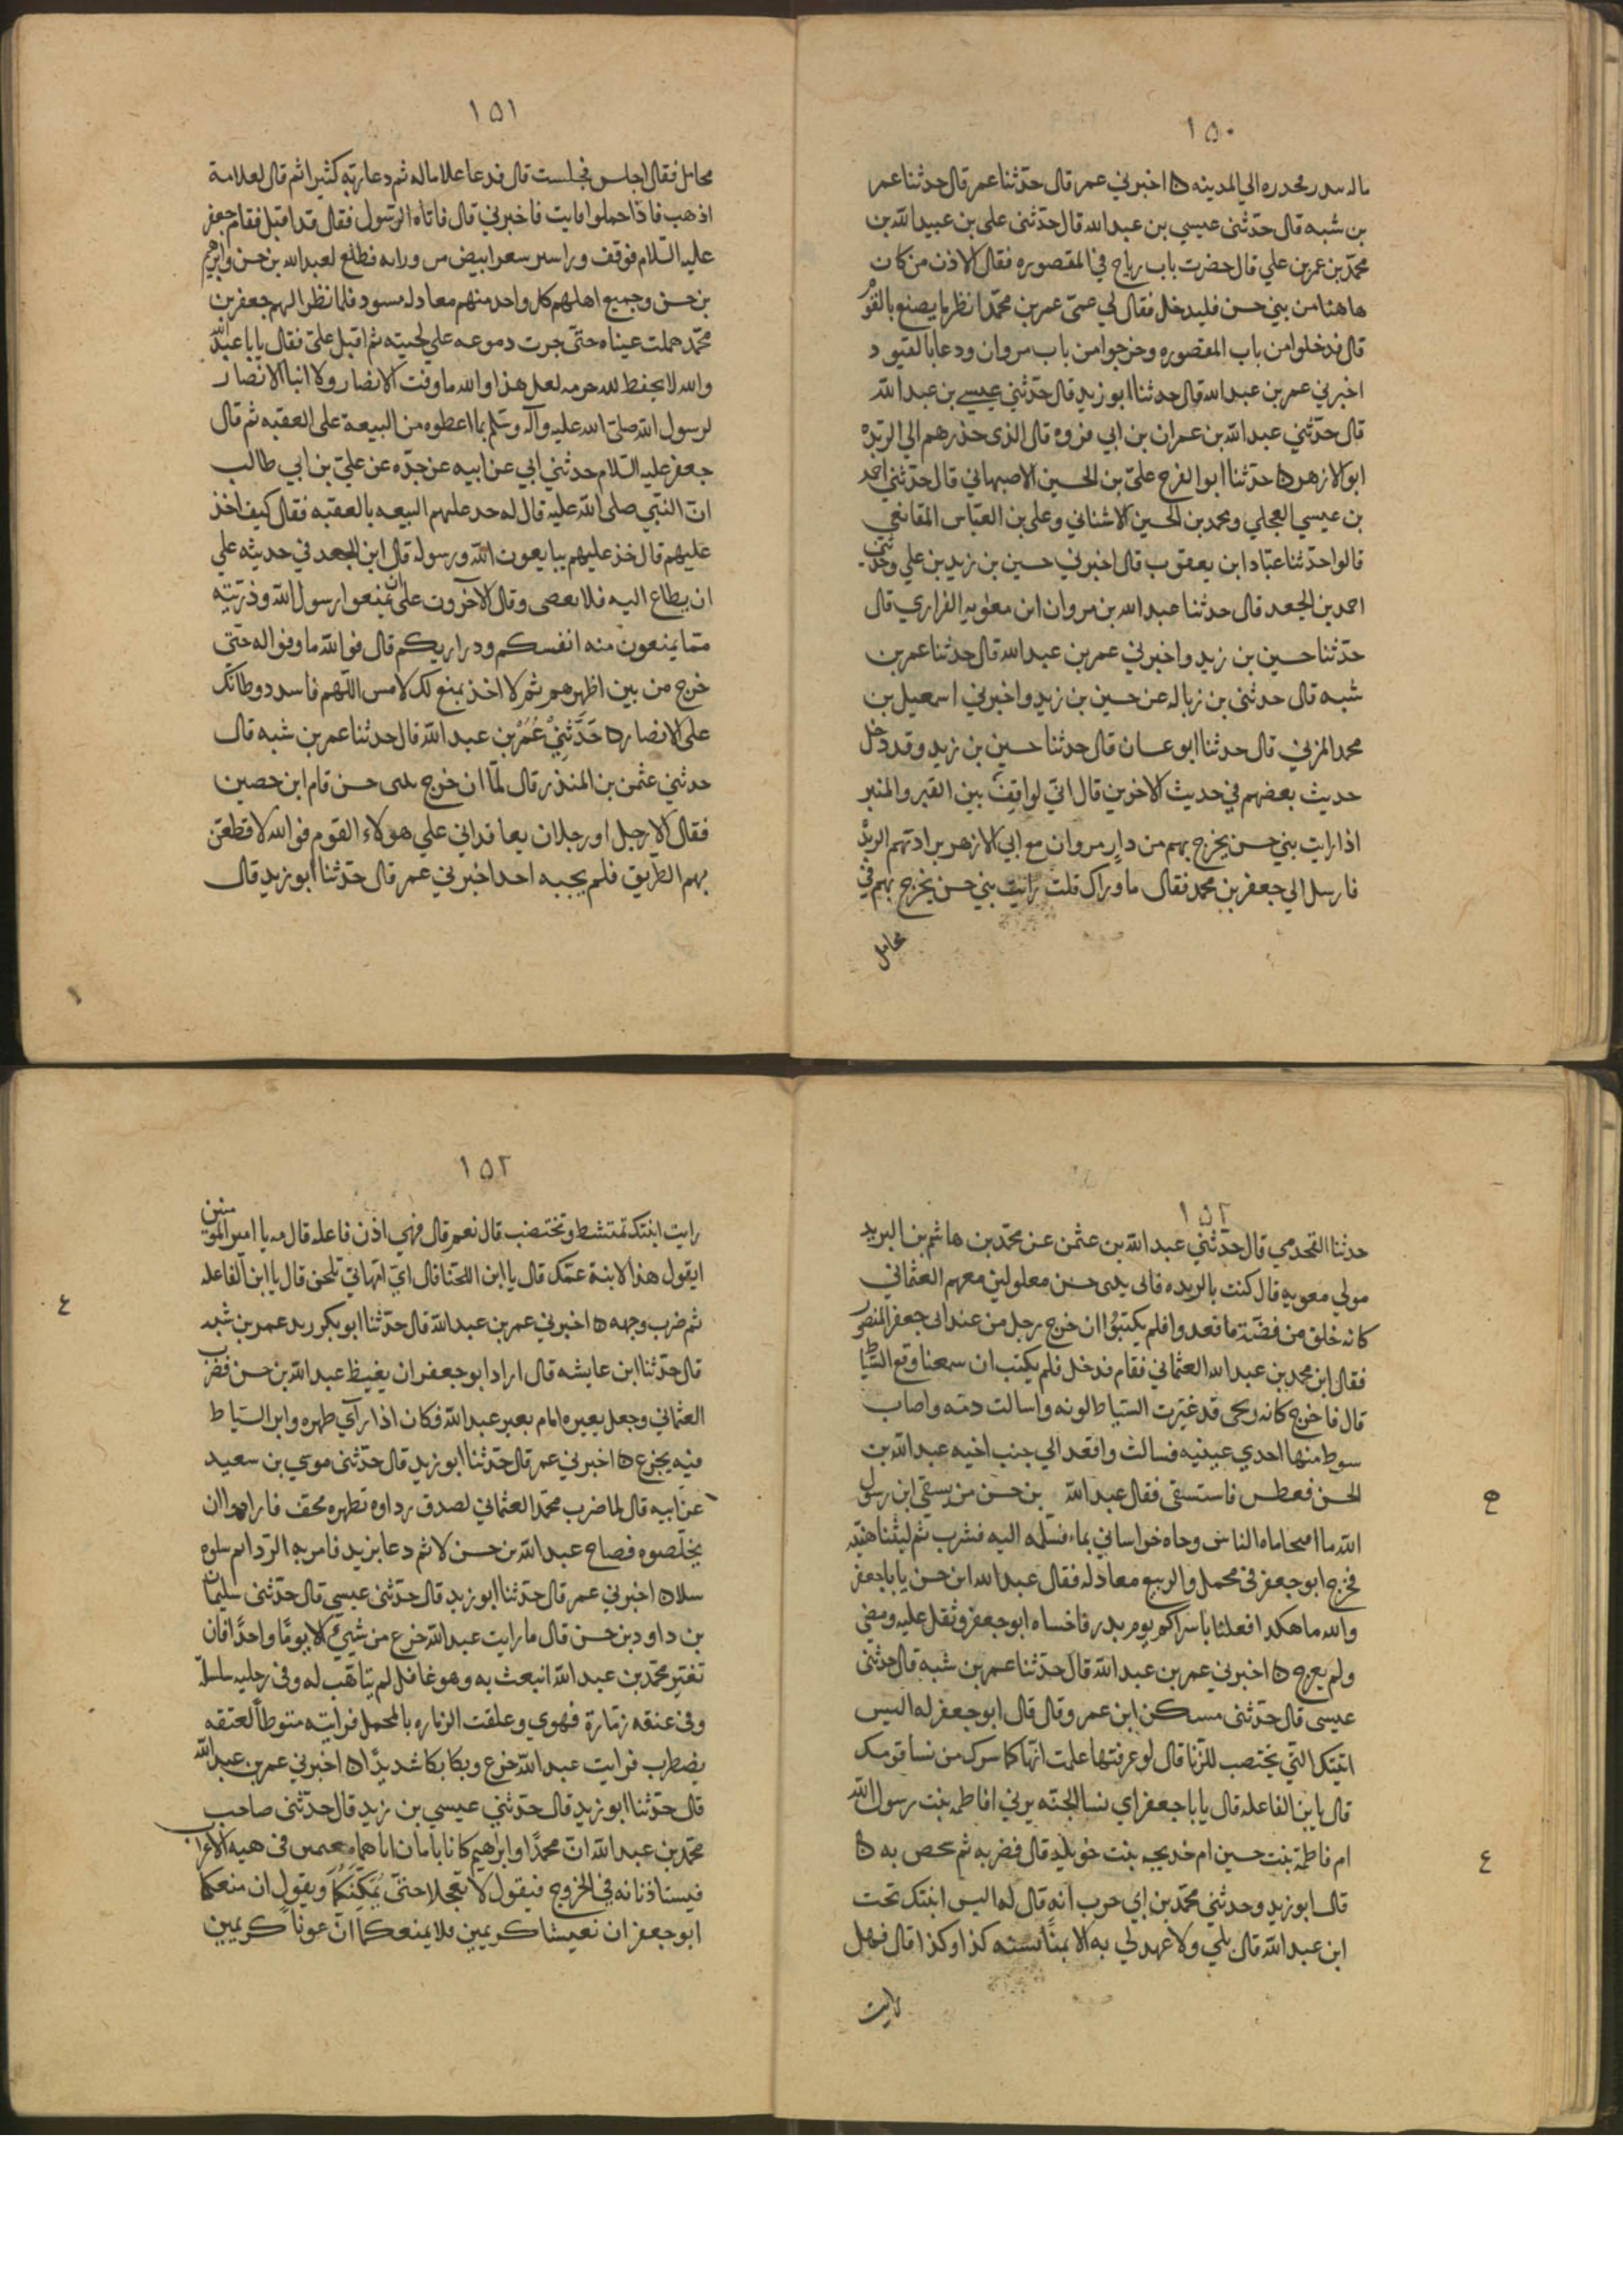 ١٥٠
الي المدينه اخبرني عمر قال حدثنا عمر قال حدثنا عمر
بن شبه قال حدثني عيسي بن عبد الله قال حدثني علي بن عبيد الله بن
محمد بن عمر بن علي قال حضرت باب رياح في المقصوره فقال الاذن من كان
هاهنا من بني حسن فليدخل فقال لي عمي عمر بن محمد انظر ما يصنع بالقوم
قال فدخلوا من باب المقصوره وخرجوا من باب مروان ودعا بالقيود
اخبرني عمر بن عبد الله قال حدثنا ابو زيد قال حدثني عيسي بن عبد الله
قال حدثني عبد الله بن عمران بن ابي فروه قال الذي حدرهم الي الربذه
ابو الازهر حدثنا ابو الفرج علي بن الحسين الاصبهاني قال حدثني احمد
بن عيسي العجلي ومحمد بن الحسين الاشناني وعلي بن العباس المقانعي
قالوا حدثنا عباد ابن يعقوب قال اخبرني حسين بن زيد بن علي وحدثني
احمد بن الجعد قال حدثنا عبد الله بن مروان ابن معويه الفزاري قال
حدثنا حسين بن زيد واخبرني عمر بن عبد الله قال حدثنا عمر بن
شبه قال حدثني بن زباله عن حسين بن زيد واخبرني اسمعيل بن
محمد المزني قال حدثنا ابو غسان قال حدثنا حسين بن زيد وقد دخل
حديث بعضهم في حديث الاخرين قال اني لواقف بين القبر والمنبر
اذا رايت بني حسن يخرج بهم من دار مروان مع ابي الازهر يراد بهم الربذ
فارسل الي جعفر بن محمد فقال ما وراك قلت رايت بني حسن يخرج بهم في
محامل
١٥١
محامل فقال اجلس فجلست قال فدعا غلاما له ثم دعا ربه كثيرا ثم قال لغلامه
اذهب فاذا حملوا فايت فاخبرني قال فاتاه الرسول فقال قد اقبل فقام جعفر
عليه السلام فوقف وراستر شعر ابيض من ورايه فطلع لعبد الله بن حسن وابرهيم
بن حسن وجميع اهلهم كل واحد منهم معادله مسود فلما نظر اليهم جعفر بن
محمد هملت عيناه حتي جرت دموعه علي لحيته ثم اقبل علي فقال يابا عبد الله
والله لا يحفظ لله حرمه لعد هذا والله ما وفت الانصار ولا ابنا الانصار
لرسول الله صلي الله عليه وآله وسلم بما اعطوه من البيعة علي العقبه ثم قال
جعفر عليه السلام حدثني ابي عن ابيه عن جده عن علي بن ابي طالب
ان النبي صلي الله عليه قال له خد عليهم البيعه بالعقبه فقال كيف اخذ
عليهم قال خذ عليهم يبايعون الله ورسوله قال ابن الجعد في حديثه علي
ان يطاع اليه فلا يعصي وقال الاخرون علي ان تمنعوا رسول الله وذريته
مما يمنعون منه انفسكم ودراريكم قال فوالله ما وفوا له حتي
خرج من بين اظهرهم ثم لا احد يمنع لك لامس اللهم فاسدد وطاتك
علي الانصار حدثني عمر بن عبد الله قال حدثنا عمر بن شبه قال
حدثني عثمن بن المنذر قال لما ان خرج ببني حسن قام ابن حصين
فقال الا رجل او رجلان يعاقداني علي هولاء القوم فوالله لا قطعن
بهم الطريق فلم يجبه احد اخبرني عمر قال حدثنا ابو زيد قال
١٥٢
حدثنا القحدمي قال حدثني عبد الله بن عثمن عن محمد بن هاشم بن البريد
مولي معويه قال كنت بالربذه فاتي ببني حسن مغلولين معهم العثماني
كانه خلق من فضة فاقعدوا فلم يلبثوا ان خرج رجل من عند ابي جعفر المنصور
فقال ابن محمد بن عبد الله العثماني فقام فدخل فلم يلبث ان سمعنا وقع السياط
قال فاخرج كانه زنجي قد غيرت السياط لونه واسالت دمه واصاب
سوط منها احدي عينيه فسالت واقعد الي جنب اخيه عبد الله بن
الحسن فعطس فاستسقي فقال عبد الله بن حسن من يسقي ابن رسول
الله ماا فتحاماه الناس وجاه خراساني بماء فسلمه اليه فشرب ثم لبثنا هنيه
فخرج ابو جعفر في محمل والربيع معادله فقال عبد الله ابن حسن يابا جعفر
والله ما هكذا فعلنا باسراكم يوم بدر فاخساه ابو جعفر وثقل عليه ومضي
ولم يعرج اخبرني عمر بن عبد الله قال حدثنا عمر بن شبه قال حدثني
عيسي قال حدثني مسكن ابن عمر وقال قال ابو جعفر له اليس
ابنتك التي تختضب للزنا قال لو عرفتها علمت انها كما سرك من نسا قومك
قال يا بن الفاعله قال يابا جعفر اي نسا الجنه يرني افاطمه بنت رسول الله
ام فاطمة بنت حسين ام خديجه بنت خويلد قال فضربه ثم شخص به
قال ابو زيد وحدثني محمد بن ابي حرب انه قال له اليس ابنتك تحت
ابن عبد الله قال بلي ولا عهد لي به الا بمنا سنه كذا وكذا قال فهل
رايت
١٥٢
رايت ابنتك تمتشط وتختضب قال نعم قال فهي اذن فاعله قال مه يا امير المومنين
ايقول هذا لابنة عمك قال يا ابن اللخنا قال اي امهاتي تلحن قال يا ابن الفاعله
ثم ضرب وجهه اخبرني عمر بن عبد الله قال حدثنا ابو بكر زيد عمر بن شبه
قال حدثنا ابن عايشه قال اراد ابو جعفر ان يغيظ عبد الله بن حسن فضرب
العثماني وجعل بعيره امام بعير عبد الله فكان اذا رآي ظهره واثر السياط
فيه يجزع اخبرني عمر قال حدثنا ابو زيد قال حدثني موسي بن سعيد
عن ابيه قال لما ضرب محمد العثماني لصدق رداوه بظهره فجف فارادوا ان
يخلصوه فصاح عبد الله بن حسن لا ثم دعا بزيد فامر به الردا ثم سلوه
سلا اخبرني عمر قال حدثنا ابو زيد قال حدثني عيسي قال حدثني سليمان
بن داود بن حسن قال ما رايت عبد الله جزع من شيئ الا يوما واحدا فان
تغير محمد بن عبد الله انبعث به وهو غافل لم يتاهب له وفي رجليه سلسلة
وفي عنقه زمارة فهوي وعلقت الزماره بالمحمل فرايته منوطا لعنقه
يضطرب فرايت عبد الله جزع وبكا بكا شديدا اخبرني عمر بن عبد الله
قال حدثنا ابو زيد قال حدثني عيسي بن زيد قال حدثني صاحب
محمد بن عبد الله ان محمدا وابراهيم كانا ياتيان اباهما معتمين في هيه الاعراب
فيستاذنانه في الخروج فيقول لا تعجلا حتي يمكنكما ويقول ان منعكما
ابو جعفر ان تعيشا كريمين فلا يمنعكما ان تموتا كريمين